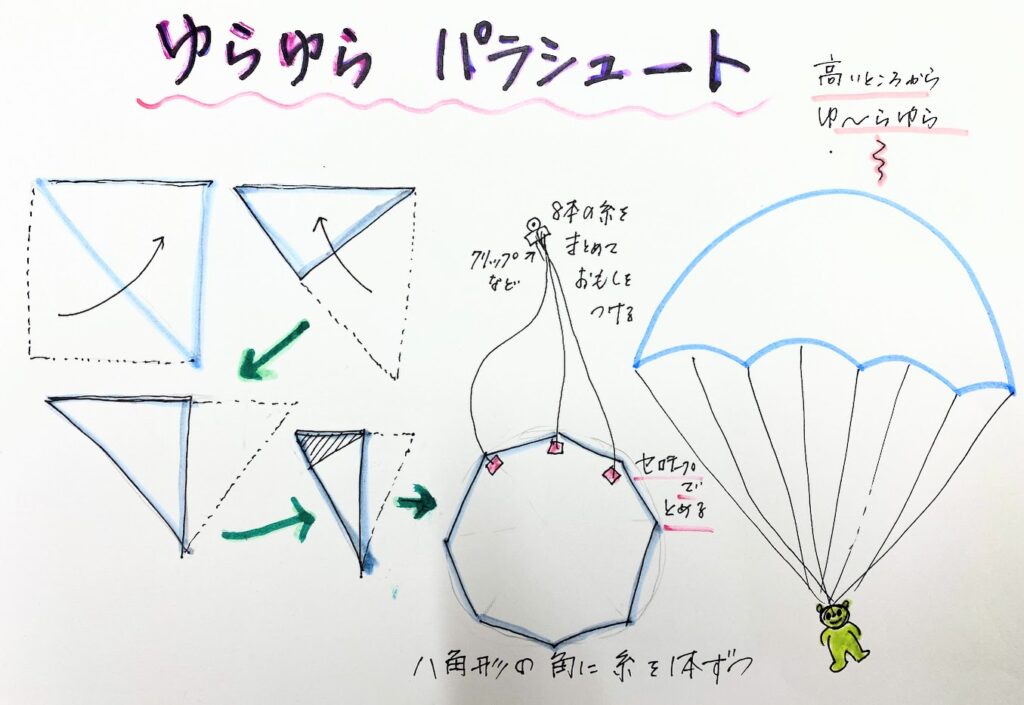 ゆらゆら パラシュート
高いところから
ゆ〜らゆら
8本の糸を
まとめて
おもしを
つける
クリップ
など
セロテープ
で
とめる
八角形の角に糸を1本ずつ